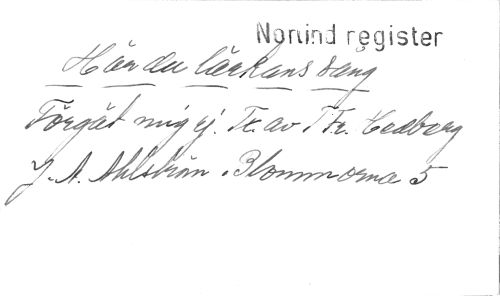 Norlind register
Hör du lärkans sång
Förgät mig ej. Tx. av Fr. Hedberg
J. A. Ahlström. Blommorna 5